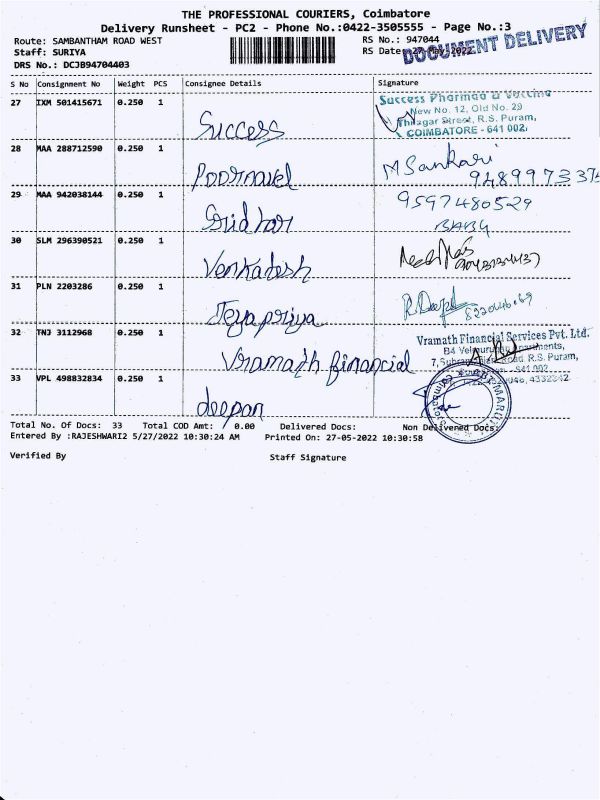 THE PROFESSIONAL COURIERS, Coimbatore
Delivery Runsheet - PC2 - Phone No.:0422-3505555 - Page No.:3
Route: SAMBANTHAM ROAD WEST
RS No.: 947044
Staff: SURIYA
RS Date: 27-May-2022
DOCUMENT DELIVERY
DRS No.: DCJB94704403
S No Consignment No Weight PCS Consignee Details Signature
27 IXM 501415671 0.250 1 Success
Success Pharma & Vaccine
New No. 12, Old No. 29
Thiagar Street, R.S. Puram,
COIMBATORE - 641 002.
28 MAA 288712590 0.250 1 Poornavel M Sankari
29 MAA 942038144 0.250 1 Sridhar 9597480529
BABY
30 SLM 296390521 0.250 1 Venkatesh
31 PLN 2203286 0.250 1 Jeyapriya R. Deepa
32 TNJ 3112968 0.250 1 Vramath financial
Vramath Financial Services Pvt. Ltd.
R.S. Puram,
33 VPL 498832834 0.250 1 deepan
Total No. Of Docs: 33 Total COD Amt: 0.00 Delivered Docs: Non Delivered Docs:
Entered By :RAJESHWARI2 5/27/2022 10:30:24 AM Printed On: 27-05-2022 10:30:58
Verified By Staff Signature